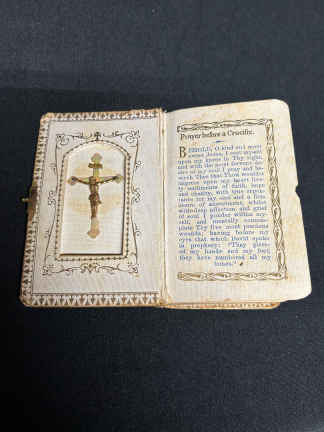 Prayer before a Crucifix.
BEHOLD, O kind and most
sweet Jesus, I cast myself
upon my knees in Thy sight,
and with the most fervent de-
sire of my soul I pray and be-
seech Thee that Thou wouldst
impress upon my heart live-
ly sentiments of faith, hope
and charity, with true repen-
tance for my sins and a firm
desire of amendment, whilst
with deep affection and grief
of soul I ponder within my-
self, and mentally contem-
plate Thy five most precious
wounds; having before my
eyes that which David spoke
in prophecy: "They pierc-
ed my hands and my feet;
they have numbered all my
bones."